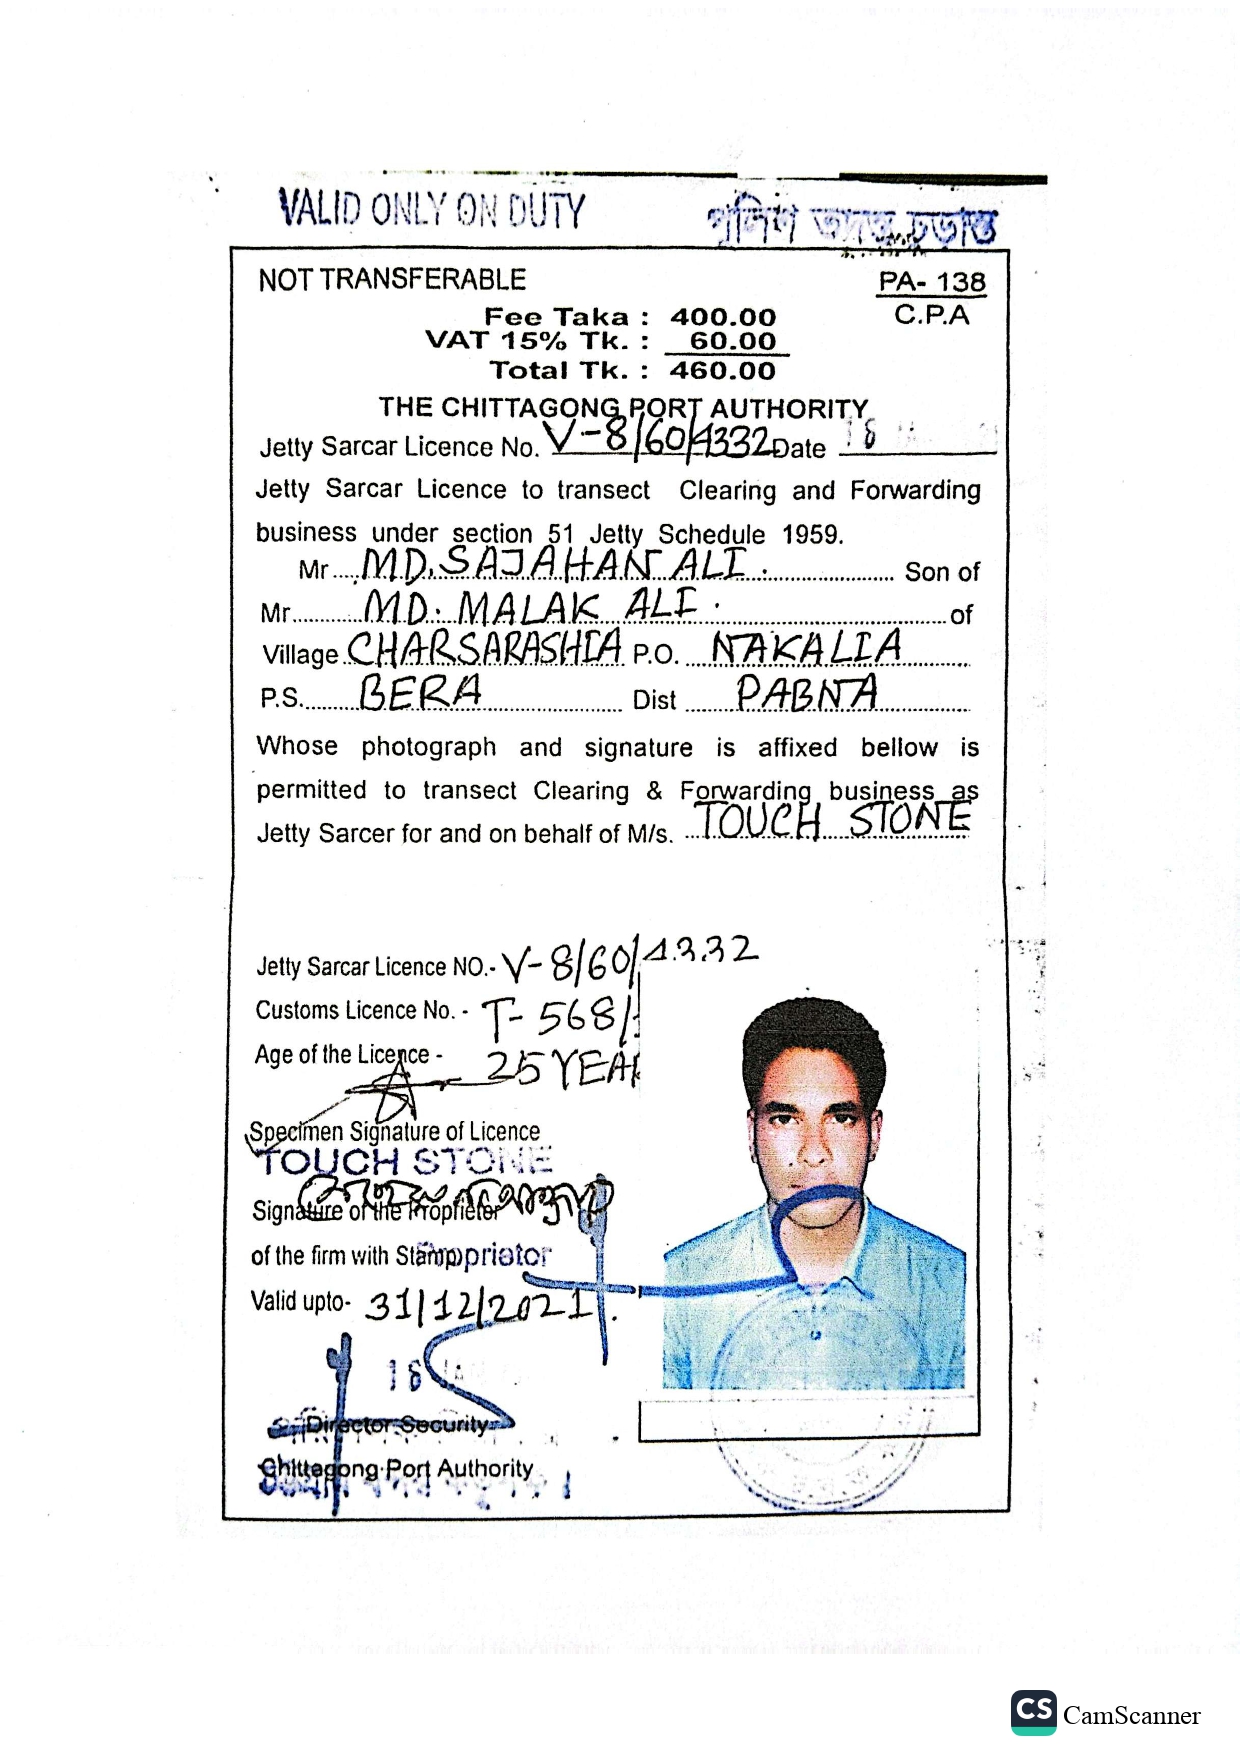 VALID ONLY ON DUTY
পুলিশ তদন্ত চুড়ান্ত
NOT TRANSFERABLE
PA- 138
C.P.A
Fee Taka : 400.00
VAT 15% Tk. : 60.00
Total Tk. : 460.00
THE CHITTAGONG PORT AUTHORITY
Jetty Sarcar Licence No. V-8/60/4332 Date 18
Jetty Sarcar Licence to transect Clearing and Forwarding
business under section 51 Jetty Schedule 1959.
Mr....MD. SAJAHAN ALI.................... Son of
Mr.........MD. MALAK ALI............................of
Village..CHARSARASHIA P.O. ...NAKALIA..........
P.S.........BERA........................ Dist .......PABNA...............
Whose photograph and signature is affixed bellow is
permitted to transect Clearing & Forwarding business as
Jetty Sarcer for and on behalf of M/s. ..TOUCH STONE
Jetty Sarcar Licence NO.- V-8/60/4332
Customs Licence No. - T- 568/
Age of the Licence - 25 YEAR
Specimen Signature of Licence
TOUCH STONE
Signature of the Proprietor
of the firm with Stamp
Proprietor
Valid upto- 31/12/2021.
18
Director Security
Chittagong Port Authority
CS CamScanner